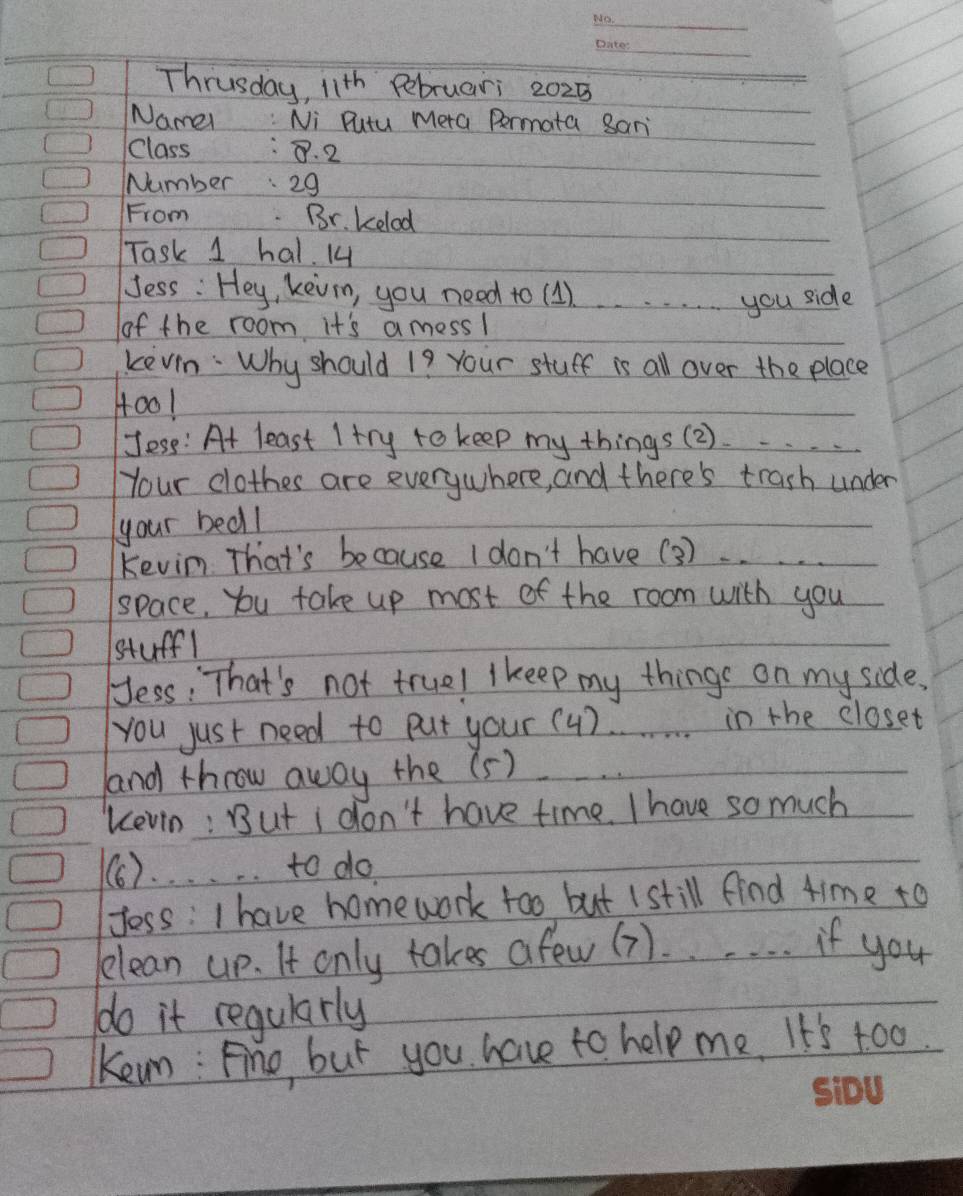 No.
Date:
Thrusday, 11th Februari 2025
Name : Ni Putu Meta Permata Sari
Class : 8.2
Number : 29
From : Br. Kelod
Task 1 hal. 14
Jess : Hey, kevin, you need to (1). ........ you side
of the room it's a mess!
kevin : Why should I? Your stuff is all over the place
too!
Jess: At least I try to keep my things (2)......
Your clothes are everywhere, and there's trash under
your bed!
Kevin That's because I don't have (3) ......
space. You take up most of the room with you
stuff!
Jess : That's not true! I keep my things on my side.
You just need to put your (4)....... in the closet
and throw away the (5) .....
Kevin : But I don't have time. I have so much
(6)....... to do.
Jess : I have homework too, but I still find time to
clean up. It only takes a few (7)........ if you
do it regularly
Kevin : Fine, but you have to help me. It's too
SiDU